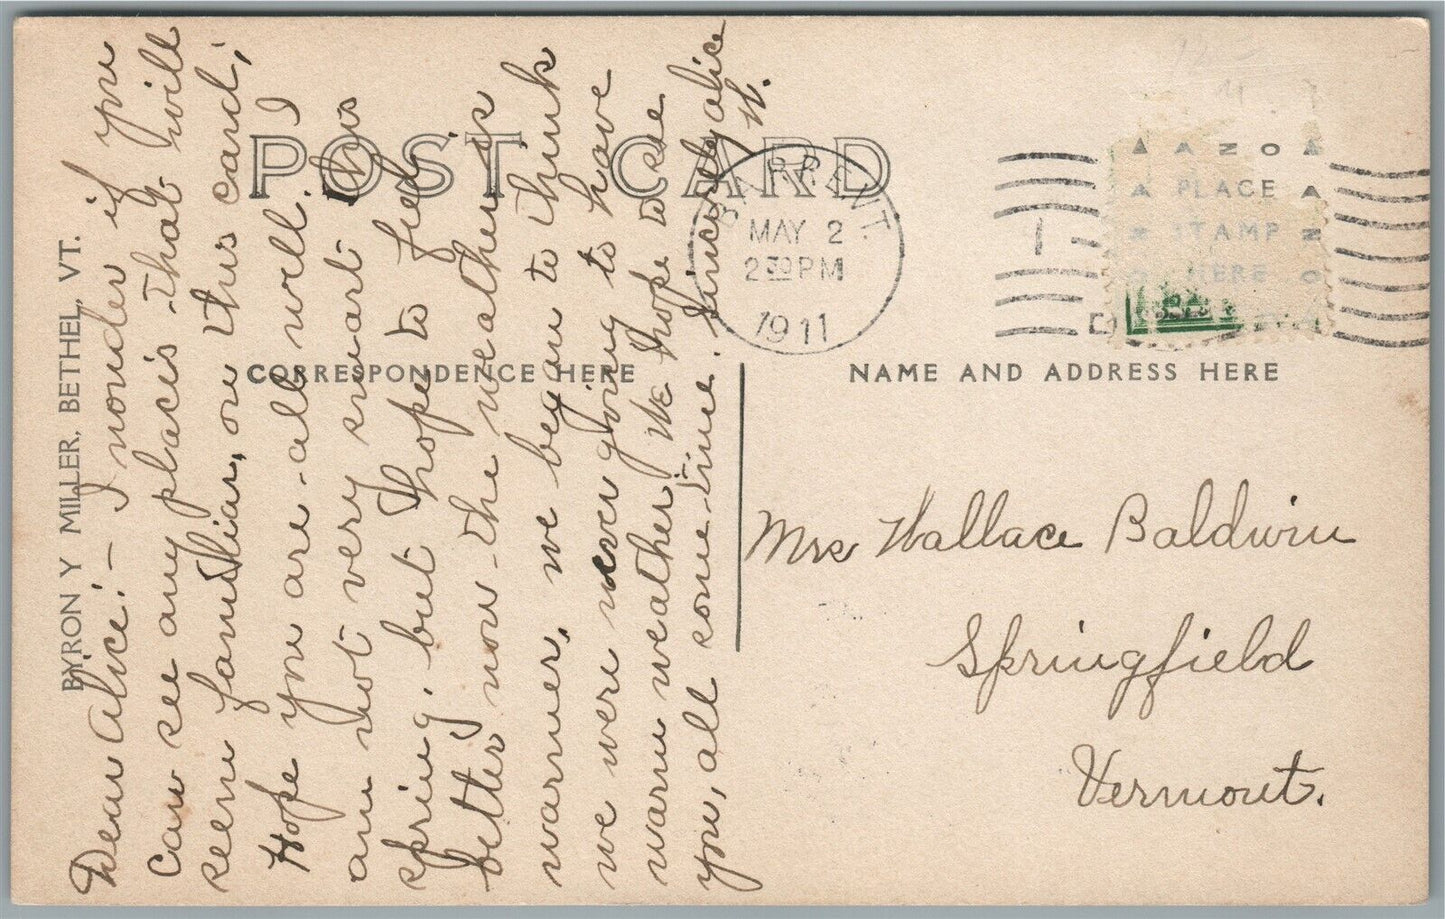 BYRON Y MILLER, BETHEL, VT.
POST CARD
BARRE, VT.
MAY 2
2 30 PM
1911
AZO
PLACE
STAMP
HERE
CORRESPONDENCE HERE
NAME AND ADDRESS HERE
Dear Alice:- I wonder if you
can see any places that will
seem familiar, on this card,
Hope you are all well. I
am not very smart this
spring, but hope to feel
better now the weather is
warmer, we began to think
we were never going to have
warm weather. We hope to see
you, all some time. Sincerely Alice
W.
Mrs Wallace Baldwin
Springfield
Vermont.